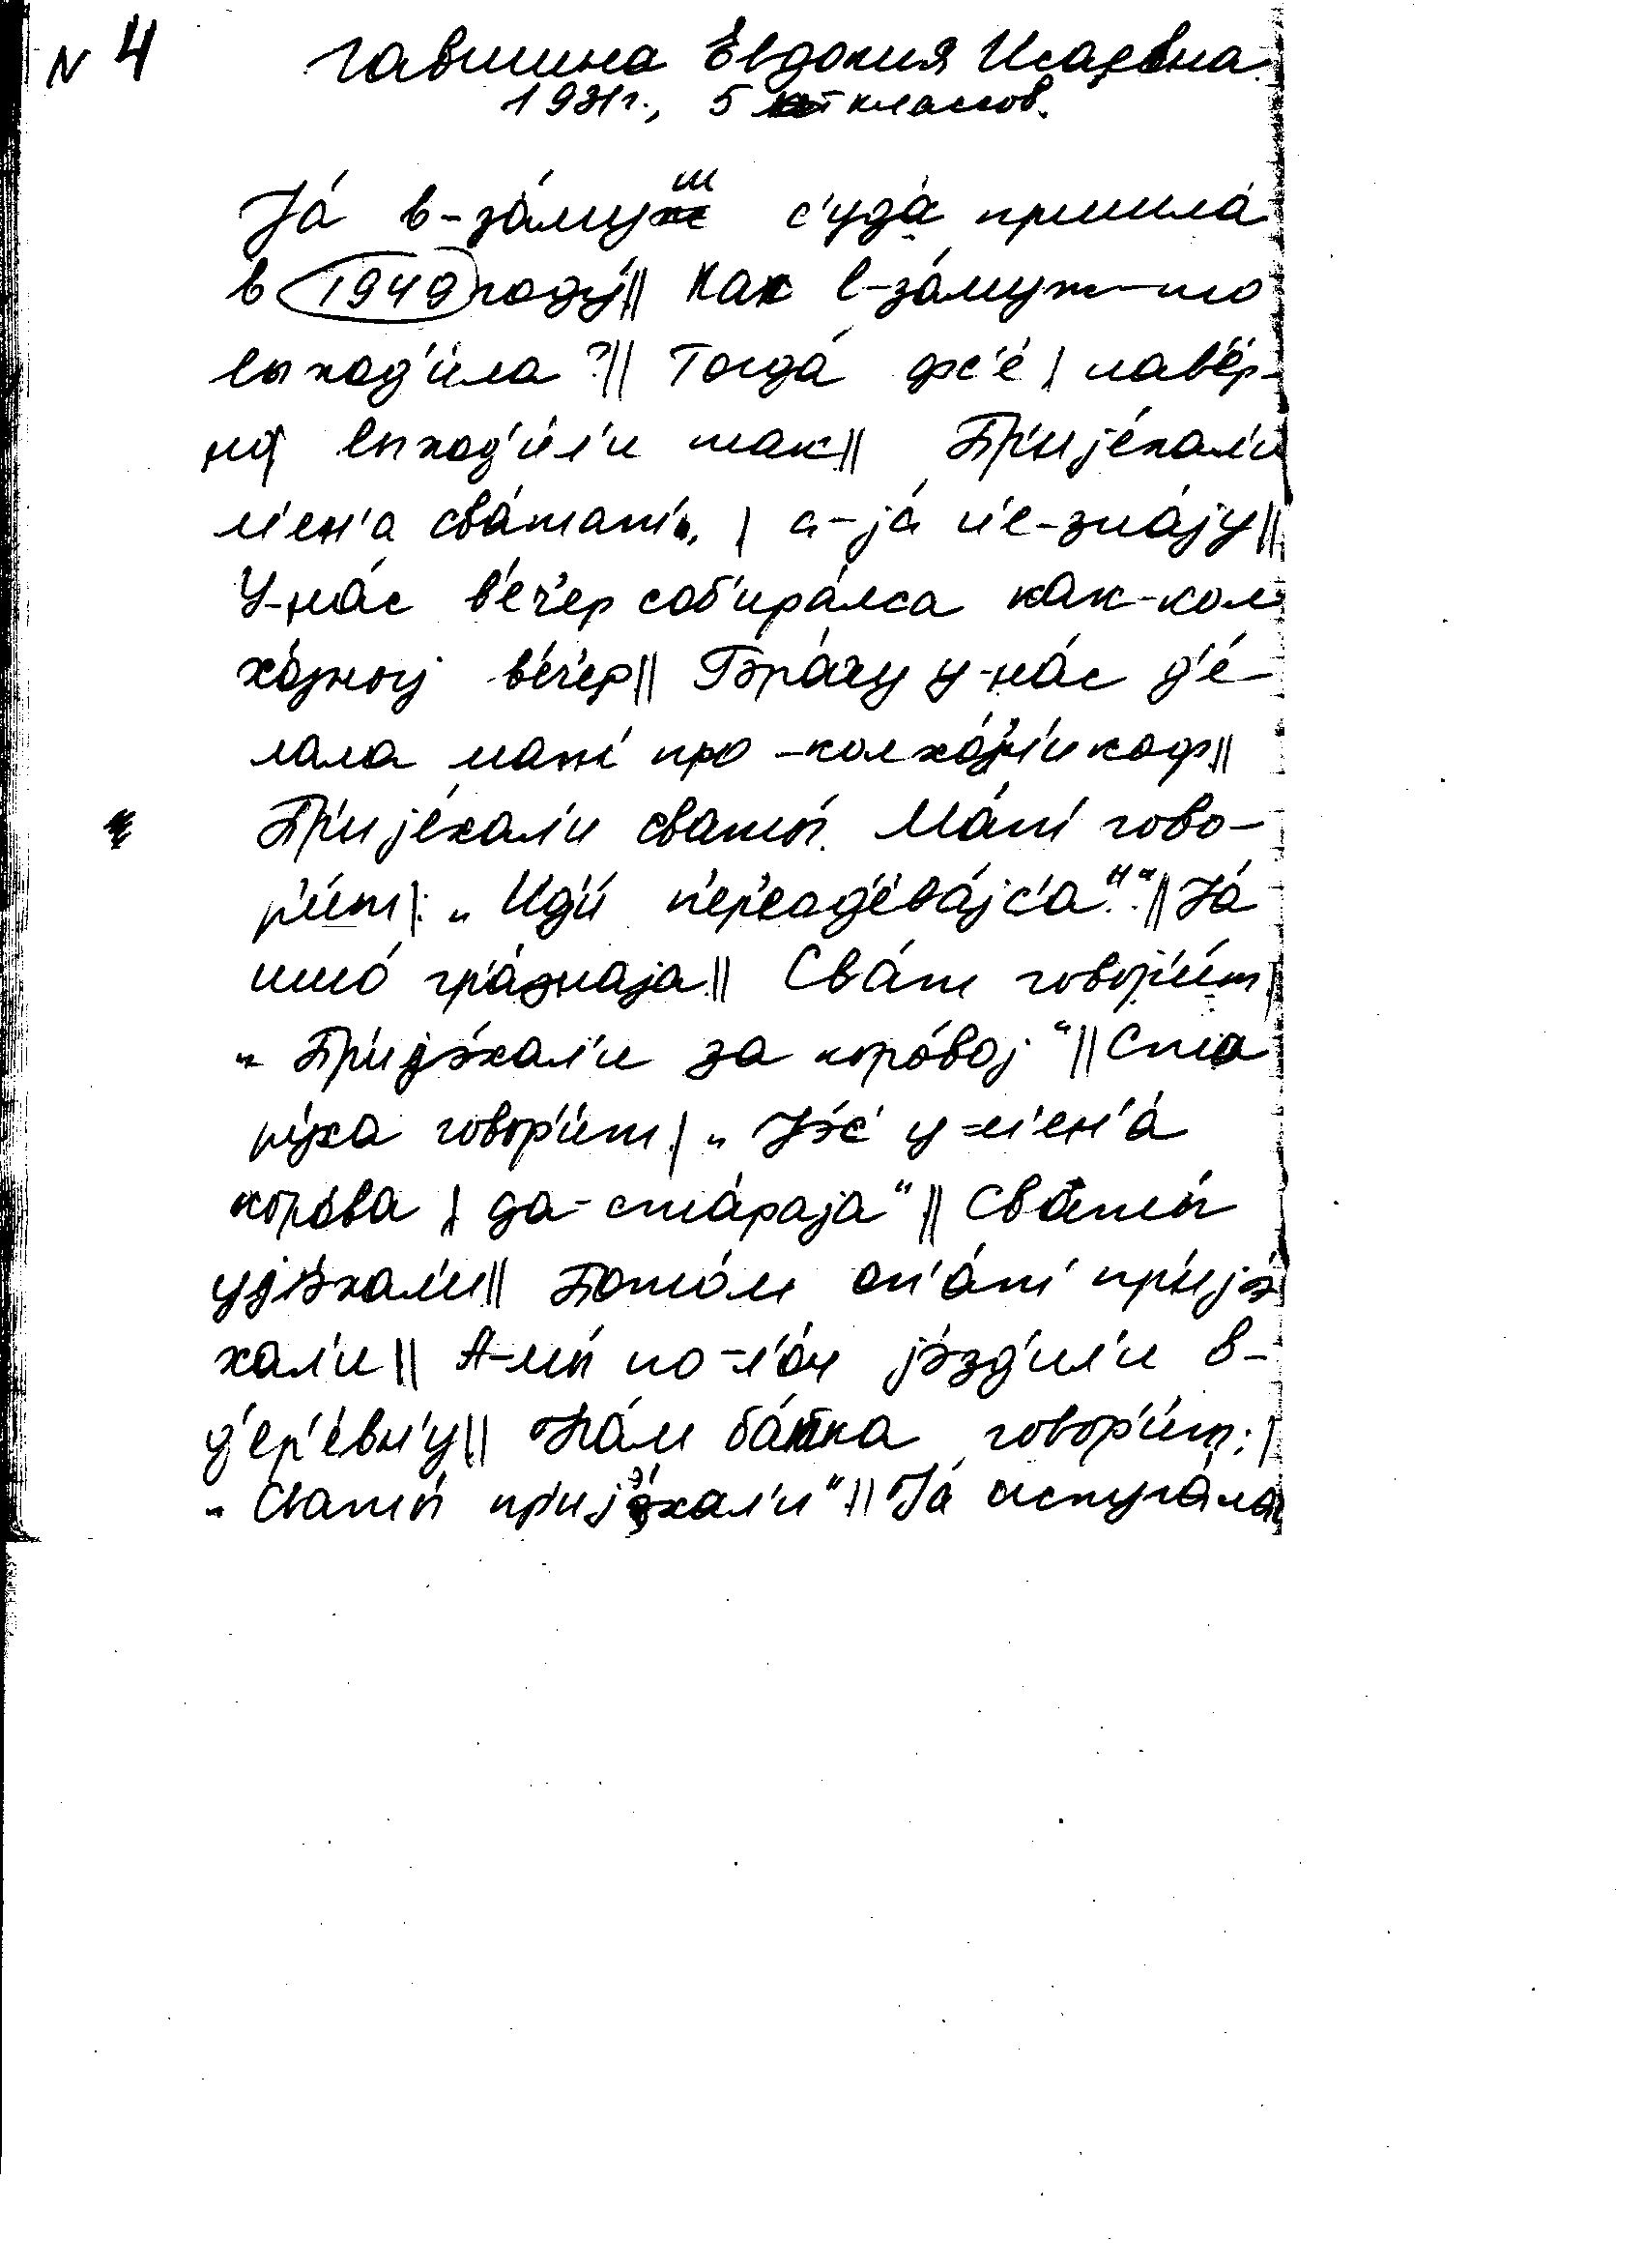 N 4 Гавшина Евдокия Исаевна
1931г., 5 классов.
Jа́ в-за́муш с'уда́ пришла́
в 1949 году́ || Как в-за́муж-то
выход'и́ла? || Тогда́ фс'е́ | нав'е́р-
но выход'и́л'и так || Пр'ијéхал'и
м'ен'а сва́тат', | а-јá н'е-знáју ||
У-на́с в'е́ч'ер соб'ира́лса как-кол
хо́зној в'е́ч'ер || Бра́гу у-на́с д'е́-
лала мат' про-колхо́з'н'икоф ||
Пр'ије́хал'и сваты́. Ма́т' гово-
р'и́т |: „Ид'и́ п'ер'еод'ева́јс'а“ || Jа́
што́ гр'а́знаја || Сва́т говор'и́т |
„Пр'ијэ́хал'и за коро́вој“ || Ста
ру́ха говор'и́т | „Jэ́с' у-м'ен'а́
коро́ва | да-ста́раја“ || Сваты́
ујэ́хал'и || Пото́м оп'а́т' пр'ијэ́
хал'и || А-мы́ по-л'о́н јэ́зд'ил'и в-
д'ер'е́вн'у || На́м ба́тка говор'и́т: |
„Сваты́ пр'ијэ́хал'и“ || Jа́ испуга́лас